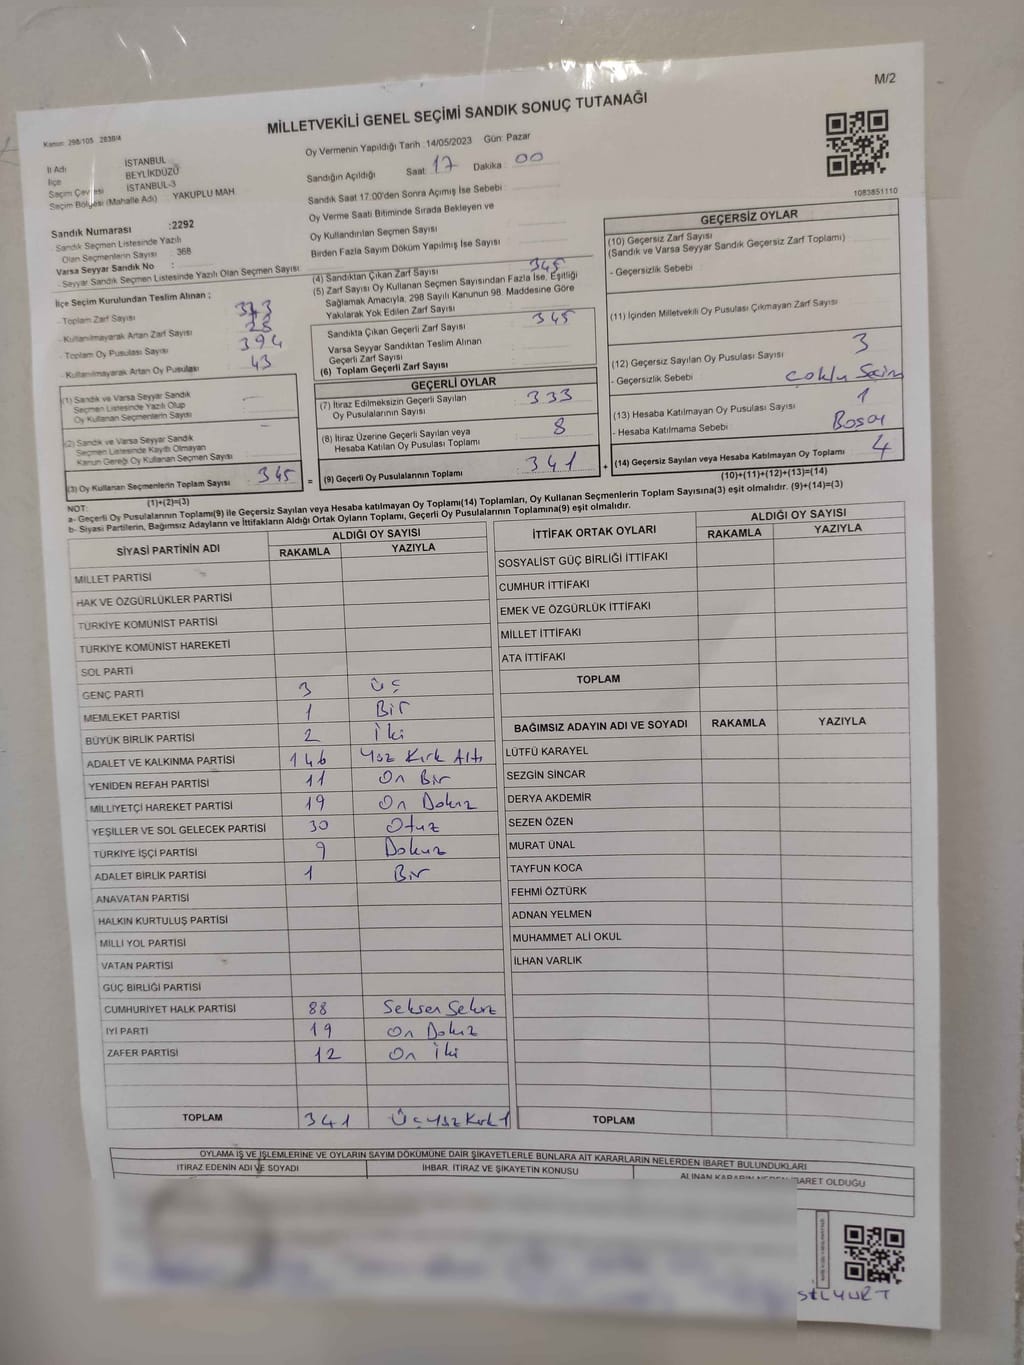 M/2
MİLLETVEKİLİ GENEL SEÇİMİ SANDIK SONUÇ TUTANAĞI
Kanun: 298/105 2839/4
İl Adı İSTANBUL
İlçe BEYLİKDÜZÜ
Seçim Çevresi İSTANBUL-3
Seçim Bölgesi (Mahalle Adı) YAKUPLU MAH.
Sandık Numarası :2292
Sandık Seçmen Listesinde Yazılı
Olan Seçmenlerin Sayısı : 368
Varsa Seyyar Sandık No :
- Seyyar Sandık Seçmen Listesinde Yazılı Olan Seçmen Sayısı
Oy Vermenin Yapıldığı Tarih :14/05/2023 Gün: Pazar
Sandığın Açıldığı Saat 17 Dakika 00
Sandık Saat 17:00'den Sonra Açımış İse Sebebi
Oy Verme Saati Bitiminde Sırada Bekleyen ve
Oy Kullandırılan Seçmen Sayısı
Birden Fazla Sayım Döküm Yapılmış İse Sayısı
1083851110
İlçe Seçim Kurulundan Teslim Alınan ;
- Toplam Zarf Sayısı : 373
- Kullanılmayarak Artan Zarf Sayısı : 28
- Toplam Oy Pusulası Sayısı : 394
- Kullanılmayarak Artan Oy Pusulası : 43
(1) Sandık ve Varsa Seyyar Sandık
Seçmen Listesinde Yazılı Olup
Oy Kullanan Seçmenlerin Sayısı : —
(2) Sandık ve Varsa Seyyar Sandık
Seçmen Listesinde Kayıtlı Olmayan
Kanun Gereği Oy Kullanan Seçmen Sayısı : —
(3) Oy Kullanan Seçmenlerin Toplam Sayısı : 345
(1)+(2)=(3)
(4) Sandıktan Çıkan Zarf Sayısı : 345
(5) Zarf Sayısı Oy Kullanan Seçmen Sayısından Fazla İse, Eşitliği
Sağlamak Amacıyla, 298 Sayılı Kanunun 98. Maddesine Göre
Yakılarak Yok Edilen Zarf Sayısı
Sandıkta Çıkan Geçerli Zarf Sayısı : 345
Varsa Seyyar Sandıktan Teslim Alınan
Geçerli Zarf Sayısı
(6) Toplam Geçerli Zarf Sayısı
GEÇERLİ OYLAR
(7) İtiraz Edilmeksizin Geçerli Sayılan
Oy Pusulalarının Sayısı : 333
(8) İtiraz Üzerine Geçerli Sayılan veya
Hesaba Katılan Oy Pusulası Toplamı : 8
= (9) Geçerli Oy Pusulalarının Toplamı : 341 +
GEÇERSİZ OYLAR
(10) Geçersiz Zarf Sayısı
(Sandık ve Varsa Seyyar Sandık Geçersiz Zarf Toplamı)
- Geçersizlik Sebebi :
(11) İçinden Milletvekili Oy Pusulası Çıkmayan Zarf Sayısı
(12) Geçersiz Sayılan Oy Pusulası Sayısı : 3
- Geçersizlik Sebebi : Çoklu Seçim
(13) Hesaba Katılmayan Oy Pusulası Sayısı : 1
- Hesaba Katılmama Sebebi :
(14) Geçersiz Sayılan veya Hesaba Katılmayan Oy Toplamı : 4
(10)+(11)+(12)+(13)=(14)
NOT:
a- Geçerli Oy Pusulalarının Toplamı(9) ile Geçersiz Sayılan veya Hesaba katılmayan Oy Toplamı(14) Toplamları, Oy Kullanan Seçmenlerin Toplam Sayısına(3) eşit olmalıdır. (9)+(14)=(3)
b- Siyasi Partilerin, Bağımsız Adayların ve İttifakların Aldığı Ortak Oyların Toplamı, Geçerli Oy Pusulalarının Toplamına(9) eşit olmalıdır.
SİYASİ PARTİNİN ADI ALDIĞI OY SAYISI
RAKAMLA YAZIYLA
MİLLET PARTİSİ
HAK VE ÖZGÜRLÜKLER PARTİSİ
TÜRKİYE KOMÜNİST PARTİSİ
TÜRKİYE KOMÜNİST HAREKETİ
SOL PARTİ
GENÇ PARTİ 3 Üç
MEMLEKET PARTİSİ 1 Bir
BÜYÜK BİRLİK PARTİSİ 2 İki
ADALET VE KALKINMA PARTİSİ 146 Yüz Kırk Altı
YENİDEN REFAH PARTİSİ 11 On Bir
MİLLİYETÇİ HAREKET PARTİSİ 19 On Dokuz
YEŞİLLER VE SOL GELECEK PARTİSİ 30 Otuz
TÜRKİYE İŞÇİ PARTİSİ 9 Dokuz
ADALET BİRLİK PARTİSİ 1 Bir
ANAVATAN PARTİSİ
HALKIN KURTULUŞ PARTİSİ
MİLLİ YOL PARTİSİ
VATAN PARTİSİ
GÜÇ BİRLİĞİ PARTİSİ
CUMHURİYET HALK PARTİSİ 88 Seksen Sekiz
İYİ PARTİ 19 On Dokuz
ZAFER PARTİSİ 12 On İki
TOPLAM 341 Üç Yüz Kırk 1
İTTİFAK ORTAK OYLARI ALDIĞI OY SAYISI
RAKAMLA YAZIYLA
SOSYALİST GÜÇ BİRLİĞİ İTTİFAKI
CUMHUR İTTİFAKI
EMEK VE ÖZGÜRLÜK İTTİFAKI
MİLLET İTTİFAKI
ATA İTTİFAKI
TOPLAM
BAĞIMSIZ ADAYIN ADI VE SOYADI RAKAMLA YAZIYLA
LÜTFÜ KARAYEL
SEZGİN SİNCAR
DERYA AKDEMİR
SEZEN ÖZEN
MURAT ÜNAL
TAYFUN KOCA
FEHMİ ÖZTÜRK
ADNAN YELMEN
MUHAMMET ALİ OKUL
İLHAN VARLIK
TOPLAM
OYLAMA İŞ VE İŞLEMLERİNE VE OYLARIN SAYIM DÖKÜMÜNE DAİR ŞİKAYETLERLE BUNLARA AİT KARARLARIN NELERDEN İBARET BULUNDUKLARI
İTİRAZ EDENİN ADI VE SOYADI İHBAR, İTİRAZ VE ŞİKAYETİN KONUSU ALINAN KARARIN NEDEN İBARET OLDUĞU